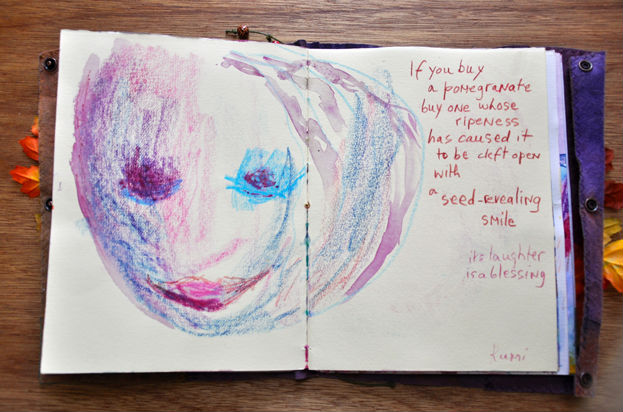 If you buy
a pomegranate
buy one whose
ripeness
has caused it
to be cleft open
with
a seed-revealing
smile
its laughter
is a blessing
Rumi